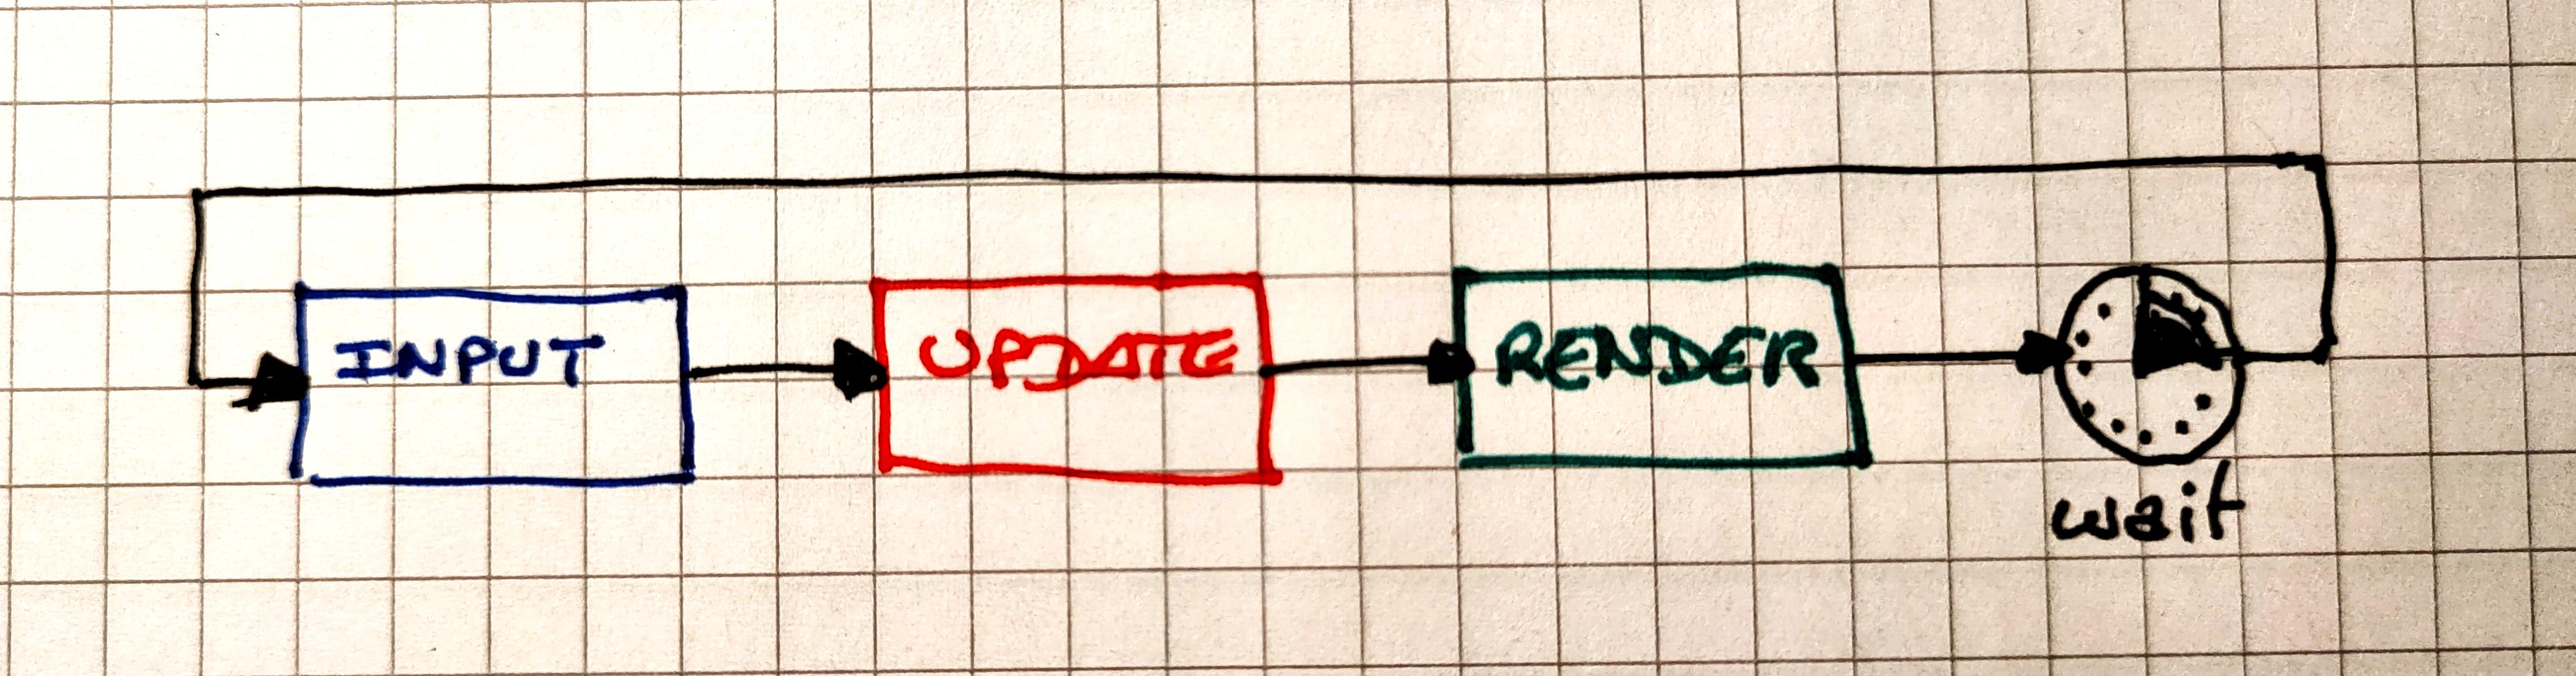 INPUT
UPDATE
RENDER
wait